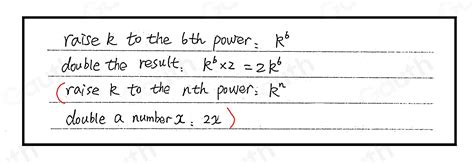 raise k to the 6th power: k⁶
double the result: k⁶×2 = 2k⁶
(raise k to the nth power: kⁿ
double a number x: 2x)